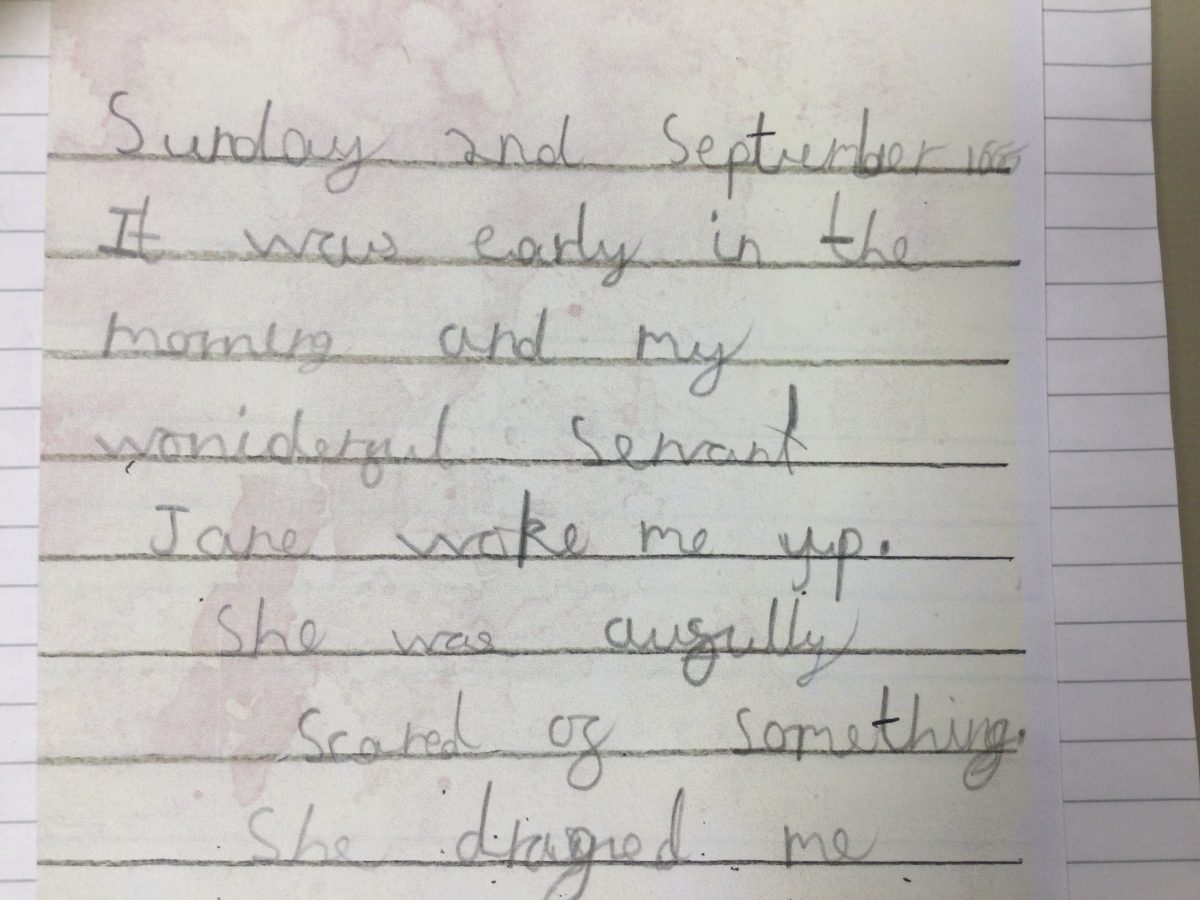 Sunday 2nd September 1666
It was early in the
morning and my
woniderful servant
Jane woke me yp.
She was aufully
scared of something.
She draged me